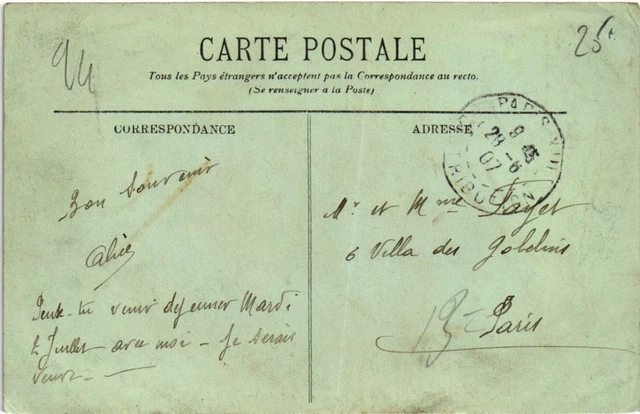 94
25f
CARTE POSTALE
Tous les Pays étrangers n'acceptent pas la Correspondance au recto.
(Se renseigner à la Poste)
CORRESPONDANCE
Bon Souvenir
Alice
Peux-tu venir déjeuner Mardi
2 Juillet avec moi - Je serais
ADRESSE
PARIS XIII
9 45
28-6
07
DISTRIBUTION
Mr et Mme Fayet
6 Villa des Gobelins
13e Paris